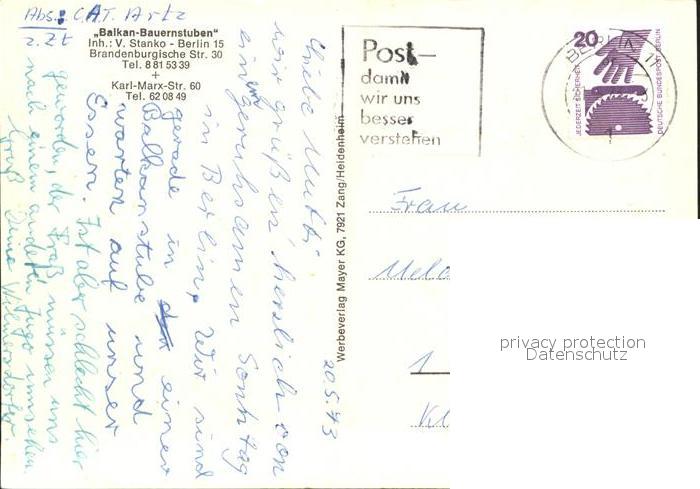 Abs.: C.A.T. Artz
z. Zt
„Balkan-Bauernstuben"
Inh.: V. Stanko - Berlin 15
Brandenburgische Str. 30
Tel. 8 81 53 39
+
Karl-Marx-Str. 60
Tel. 62 08 49
20.5.73
Liebe Mutti
wir grüßen herzlich von
einem geruhsamen Sonntag
in Berlin. Wir sind
gerade in einer
Balkanstube und
warten auf unser
Essen. Ist aber schlecht hier
geworden, der Fraß müssen uns
nach einem anderen Jugo umsehen
Gruß Deine Wilmersdorfer
Werbeverlag Mayer KG, 7921 Zang/Heidenheim
Post-
damit
wir uns
besser
verstehen
BERLIN 11
20
JEDERZEIT SICHERHEIT
DEUTSCHE BUNDESPOST BERLIN
Frau
1
privacy protection
Datenschutz